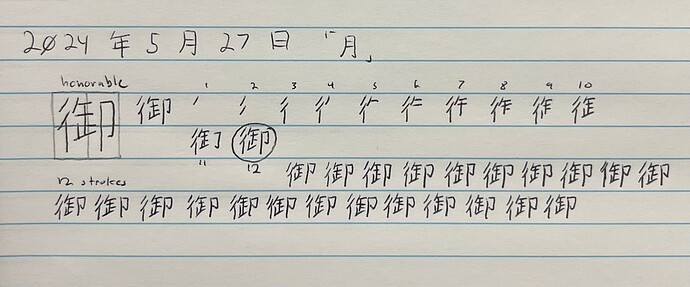 2024 年 5 月 27 日 「月」
honorable 1 2 3 4 5 6 7 8 9 10
御 御 彳
御
11 12
御 御 御 御 御 御 御 御 御 御
12 strokes
御 御 御 御 御 御 御 御 御 御 御 御 御